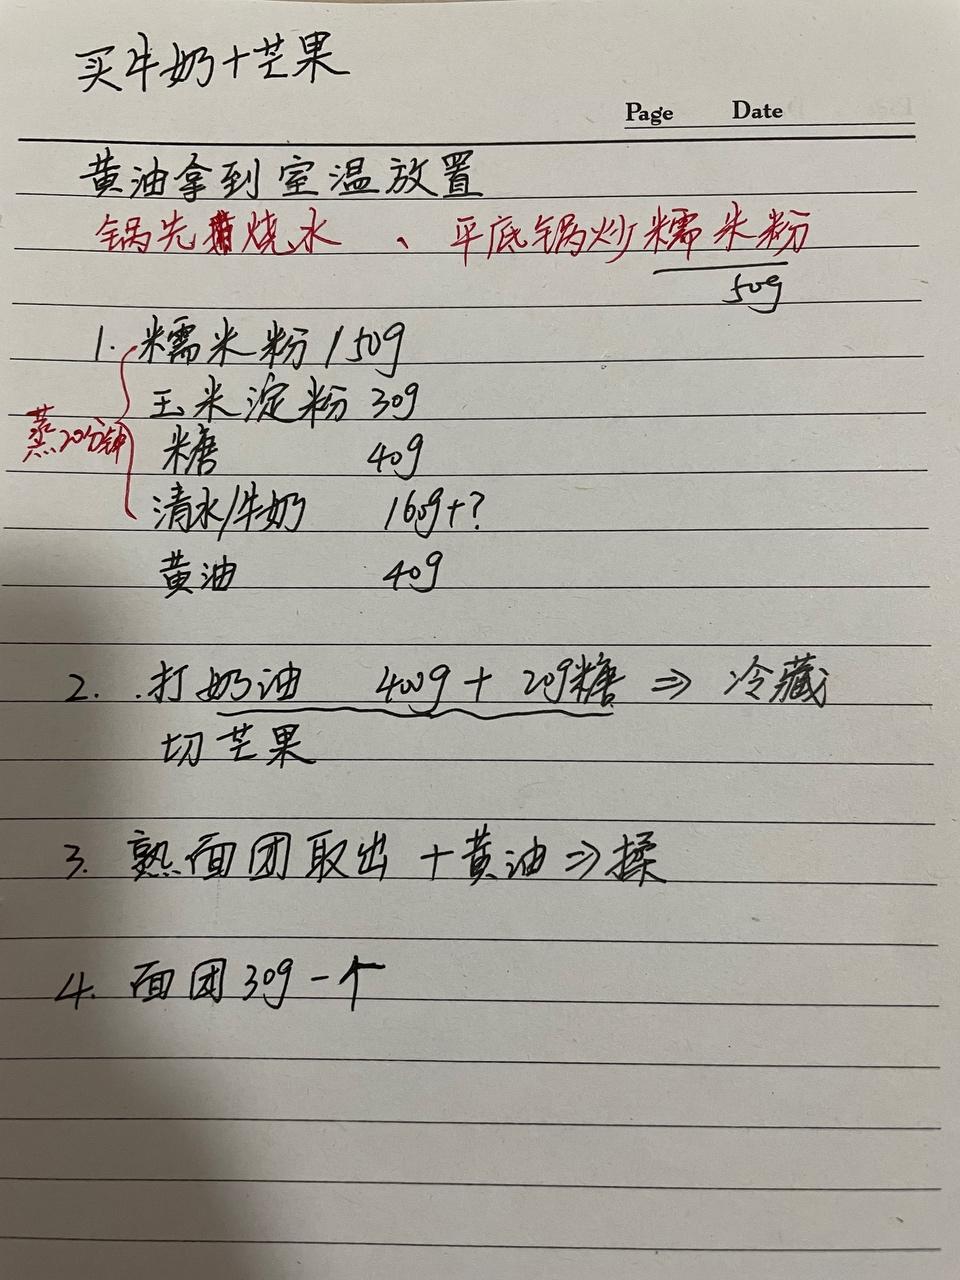 买牛奶+芒果
Page Date
黄油拿到室温放置
锅先烧水 、平底锅炒糯米粉
50g
1. 糯米粉 150g
玉米淀粉 30g
蒸20分钟
糖 40g
清水/牛奶 160g+?
黄油 40g
2. 打奶油 400g + 20g糖 ⇒ 冷藏
切芒果
3. 熟面团取出 + 黄油 ⇒ 揉
4. 面团30g一个